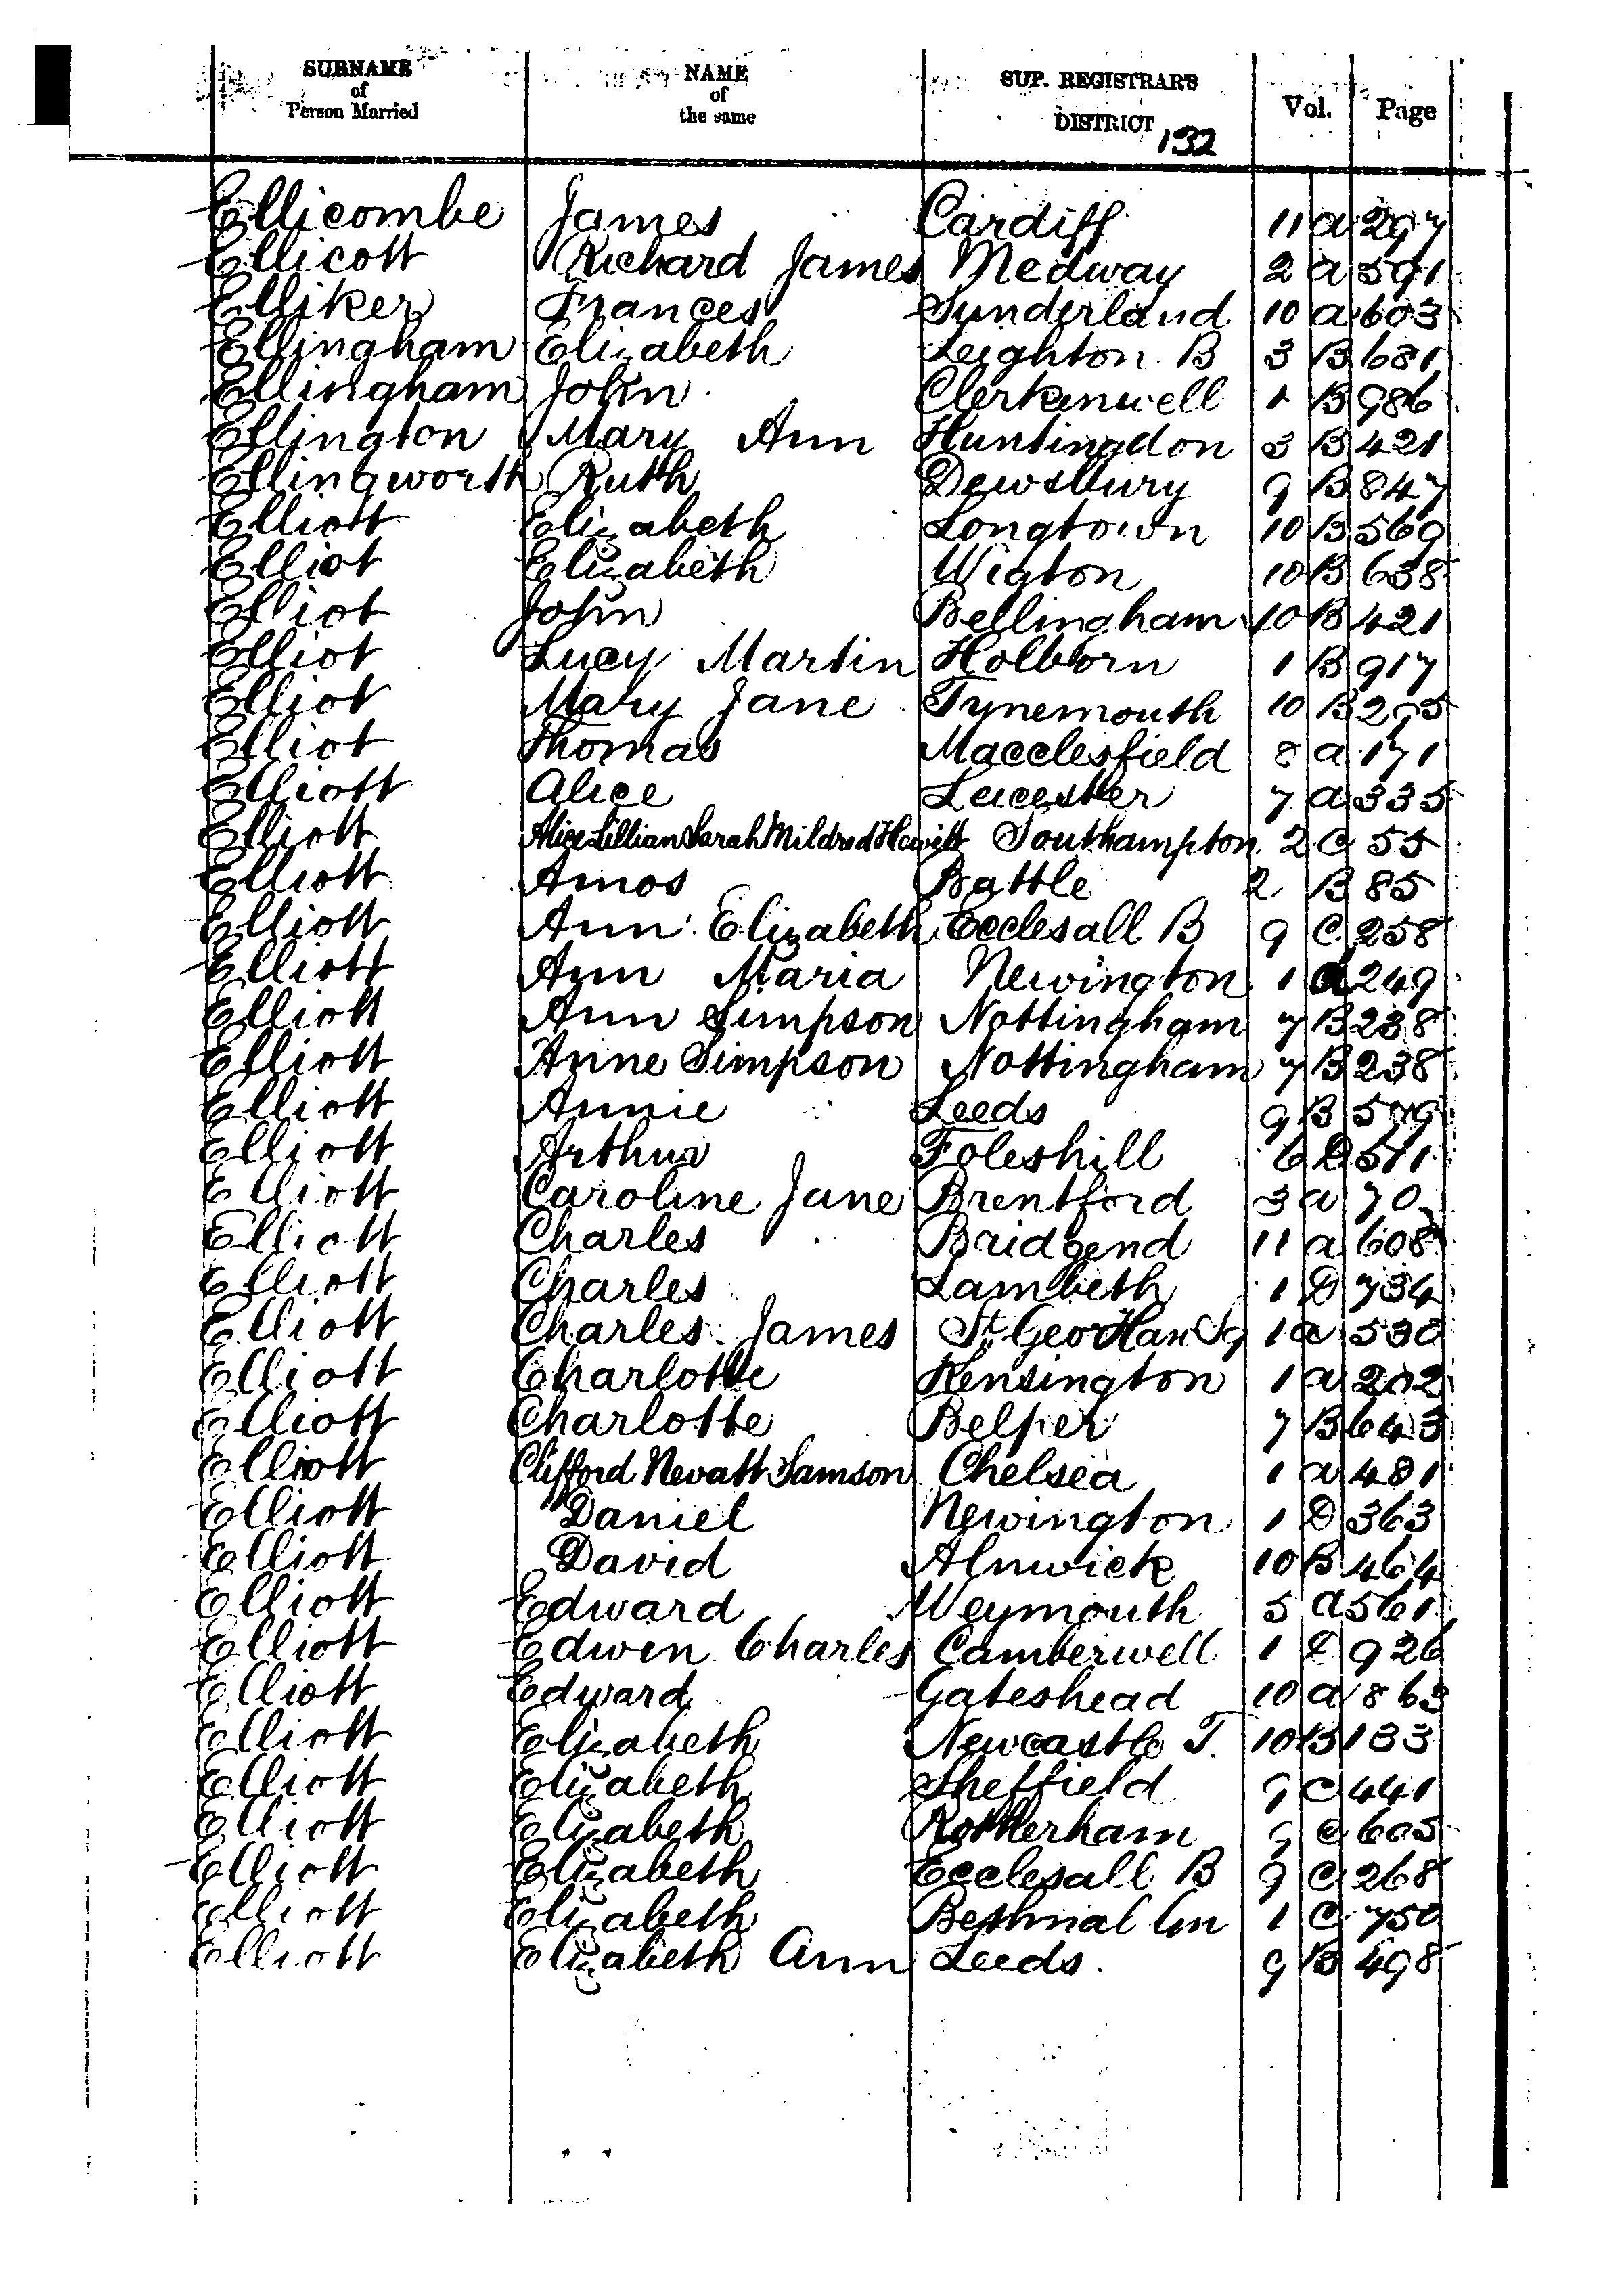 SURNAME of Person Married NAME of the same SUP. REGISTRAR'S DISTRICT Vol. Page
132
Ellicombe James Cardiff 11 a 297
Ellicott Richard James Medway 2 a 591
Elliker Frances Sunderland 10 a 603
Ellingham Elizabeth Leighton B 3 B 681
Ellingham John Clerkenwell 1 B 986
Ellington Mary Ann Huntingdon 3 B 421
Ellingworth Ruth Dewsbury 9 B 847
Elliott Elizabeth Longtown 10 B 569
Elliot Elizabeth Wigton 10 B 638
Elliot John Bellingham 10 B 421
Elliot Lucy Martin Holborn 1 B 917
Elliot Mary Jane Tynemouth 10 B 295
Elliot Thomas Macclesfield 8 a 171
Elliott Alice Leicester 7 a 335
Elliott Alice Lillian Sarah Mildred Hewitt Southampton 2 C 55
Elliott Amos Battle 2 B 85
Elliott Ann Elizabeth Ecclesall B 9 C 258
Elliott Ann Maria Newington 1 d 249
Elliott Ann Simpson Nottingham 7 B 238
Elliott Anne Simpson Nottingham 7 B 238
Elliott Annie Leeds 9 B
Elliott Arthur Foleshill 6 D 511
Elliott Caroline Jane Brentford 3 a 70
Elliott Charles Bridgend 11 a 608
Elliott Charles Lambeth 1 D 734
Elliott Charles James St. Geo Han Sq 1 a 530
Elliott Charlotte Kensington 1 a 202
Elliott Charlotte Belper 7 B 643
Elliott Clifford Nevatt Samson Chelsea 1 a 481
Elliott Daniel Newington 1 D 363
Elliott David Alnwick 10 B 464
Elliott Edward Weymouth 5 a 561
Elliott Edwin Charles Camberwell 1 D 926
Elliott Edward Gateshead 10 a 863
Elliott Elizabeth Newcastle T. 10 B 133
Elliott Elizabeth Sheffield 9 C 441
Elliott Elizabeth Rotherham 9 C 605
Elliott Elizabeth Ecclesall B 9 C 268
Elliott Elizabeth Bethnal Gn 1 C 750
Elliott Elizabeth Ann Leeds. 9 B 498